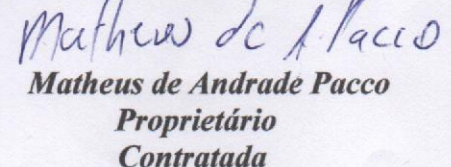 Matheus de A. Pacco
Matheus de Andrade Pacco
Proprietário
Contratada